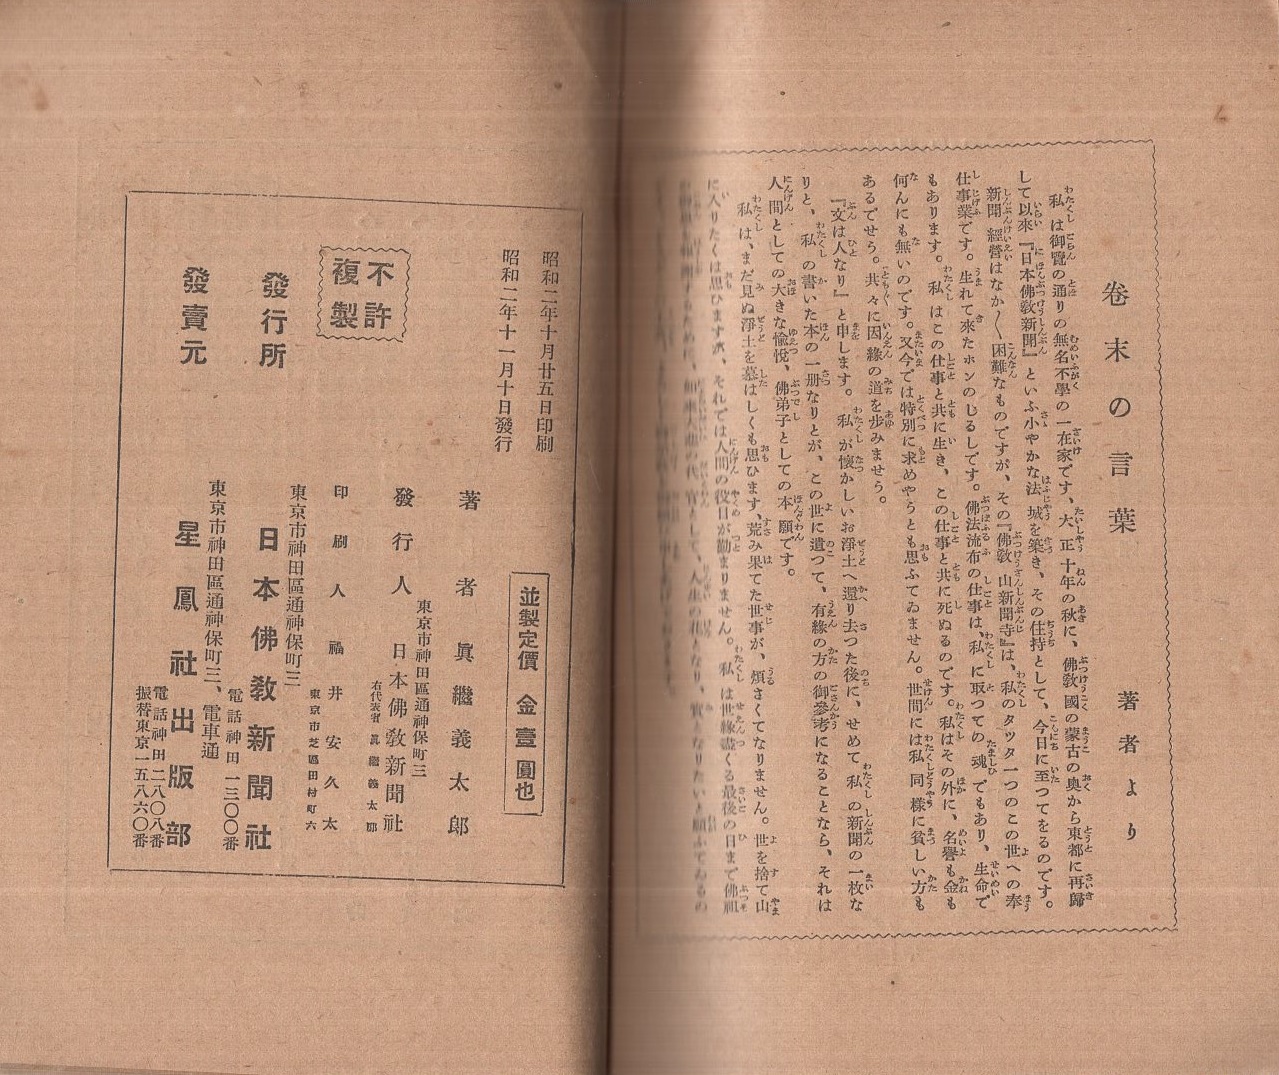 卷末の言葉
著者より
私は御覽の通りの無名不學の一在家です、大正十年の秋に、佛敎國の蒙古の奥から東都に再歸
して以來『日本佛敎新聞』といふ小やかな法城を築き、その住持として、今日に至つてをるのです。
新聞經營はなか〱困難なものですが、その『佛敎山新聞寺』は、私のタッタ一つのこの世への奉
仕事業です。生れて來たホンのしるしです。佛法流布の仕事は、私に取つての魂でもあり、生命で
もあります。私はこの仕事と共に生き、この仕事と共に死ぬるのです。私はその外に、名譽も金も
何んにも無いのです。又今では特別に求めやうとも思ふてゐません。世間には私同樣に貧しい方も
あるでせう。共々に因緣の道を步みませう。
『文は人なり』と申します。私が懷かしいお淨土へ還り去つた後に、せめて私の新聞の一枚な
りと、私の書いた本の一册なりとが、この世に遺つて、有緣の方の御參考になることなら、それは
人間としての大きな愉悅、佛弟子としての本願です。
私は、まだ見ぬ淨土を慕はしくも思ひます、荒み果てた世事が、煩さくてなりません。世を捨て山
に入りたくは思ひますが、それでは人間の役目が勤まりません。私は世緣盡くる最後の日まで佛祖
昭和二年十月廿五日印刷
昭和二年十一月十日發行
不許
複製
並製定價 金壹圓也
著者 眞繼義太郎
東京市神田區通神保町三
發行人 日本佛敎新聞社
右代表者 眞繼義太郎
印刷人 福井安久太
東京市芝區田村町六
東京市神田區通神保町三
發行所 日本佛敎新聞社
電話神田一三〇〇番
東京市神田區通神保町三、電車通
發賣元 星鳳社出版部
電話神田二八〇八番
振替東京一五八六〇番